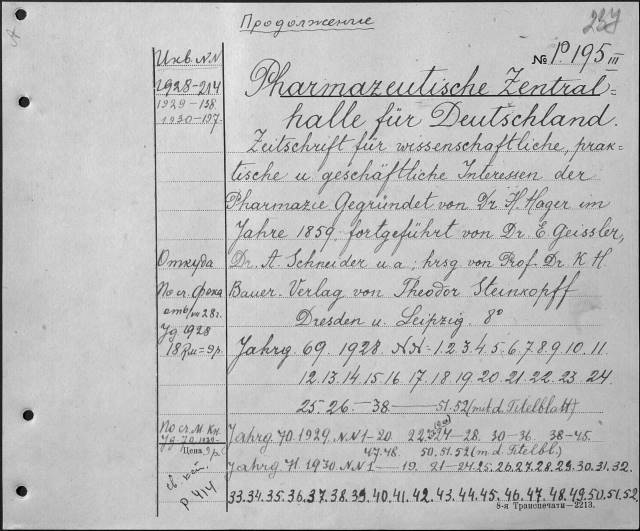 Продолжение
237
№ Р. 195 III
Инв. NN
1928-214
1929-158.
1930-197.
Pharmazeutische Zentral=
halle für Deutschland.
Zeitschrift für wissenschaftliche, prak-
tische u geschäftliche Interessen der
Pharmazie Gegründet von Dr H. Hager im
Jahre 1859. fortgeführt von Dr. E. Geissler,
Dr. A Schneider u.a; hrsg von Prof. Dr. K H
Bauer. Verlag von Theodor Steinkopff
Dresden u. Leipzig. 8°
Откуда
По сч. Фока
28г.
1928
18 Rm = 9 р.
Jahrg. 69. 1928. NN=1.2.3.4.5.6.7.8.9.10.11.
12.13.14.15.16 17.18.19.20.21.22.23.24
25.26.—38.——51.52 (mit d. Titelblatt)
По сч. М. Кн.
Цена
Jahrg 70. 1929. NN 1-20 28. 30-36. 38-45.
47.48. 50.51.52 (m d. Titelbl.)
Jahrg 71. 1930. NN 1——19. 21—24.25.26.27.28.29.30.31.32.
33.34.35.36.37.38.39.40.41.42.43.44.45.46.47.48.49.50.51.52
Р 414
8-я Транспечати—2213.